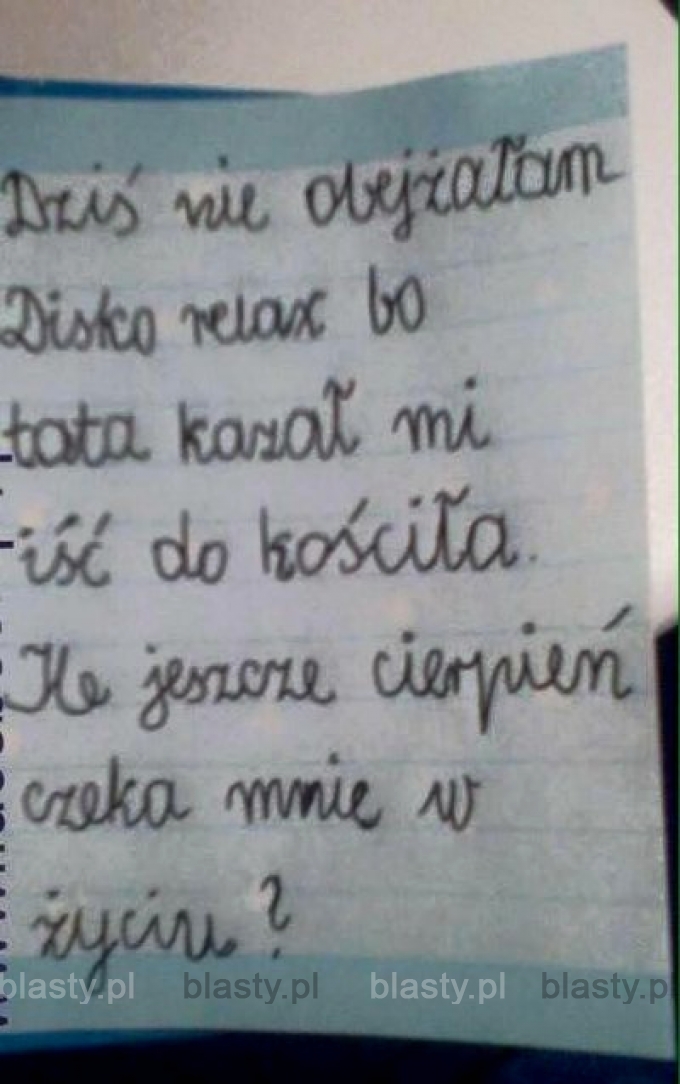 Dziś nie obejżałam
Disko relax bo
tata kazał mi
iść do kościła.
Ile jeszcze cierpień
czeka mnie w
życiu?
blasty.pl blasty.pl blasty.pl blasty.pl